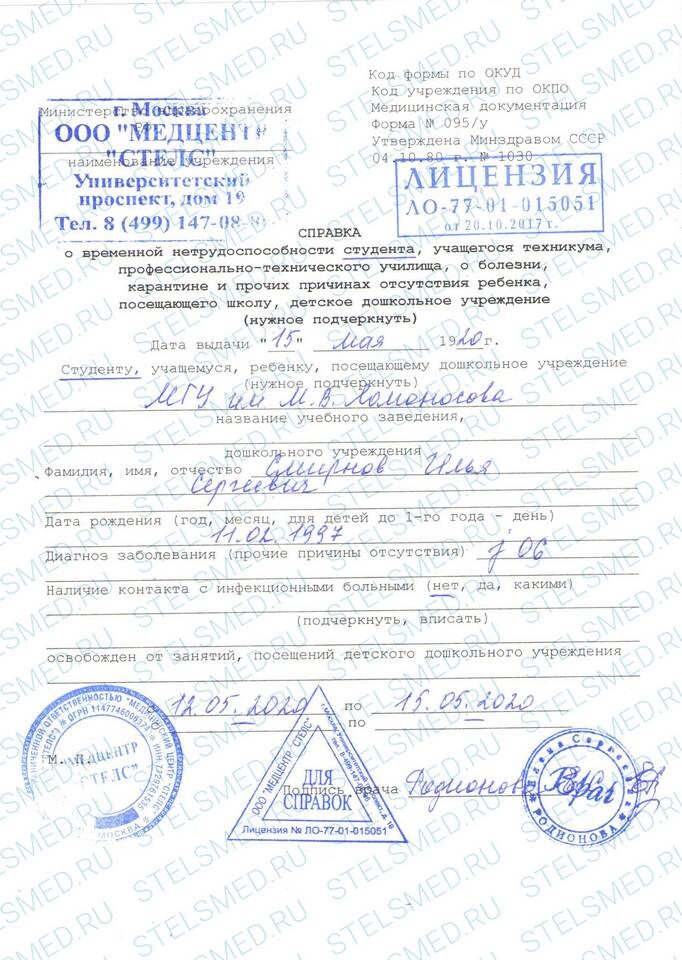 Код формы по ОКУД
Код учреждения по ОКПО
Министерство здравоохранения
Медицинская документация
Форма № 095/у
Утверждена Минздравом СССР
04.10.80 г. № 1030
г. Москва
ООО "МЕДЦЕНТР
"СТЕЛС"
наименование учреждения
Университетский
проспект, дом 19
Тел. 8 (499) 147-08-
ЛИЦЕНЗИЯ
ЛО-77-01-015051
от 20.10.2017 г.
СПРАВКА
о временной нетрудоспособности студента, учащегося техникума,
профессионально-технического училища, о болезни,
карантине и прочих причинах отсутствия ребенка,
посещающего школу, детское дошкольное учреждение
(нужное подчеркнуть)
Дата выдачи "15" мая 1920г.
Студенту, учащемуся, ребенку, посещающему дошкольное учреждение
(нужное подчеркнуть)
МГУ им М.В. Ломоносова
название учебного заведения,
дошкольного учреждения
Фамилия, имя, отчество Смирнов Илья
Сергеевич
Дата рождения (год, месяц, для детей до 1-го года - день)
11.02.1997
Диагноз заболевания (прочие причины отсутствия) j 06
Наличие контакта с инфекционными больными (нет, да, какими)
(подчеркнуть, вписать)
освобожден от занятий, посещений детского дошкольного учреждения
с 12.05.2020 по 15.05.2020
с по
М. П.
МЕДЦЕНТР
"СТЕЛС"
МОСКВА
ООО "МЕДЦЕНТР СТЕЛС"
ДЛЯ
СПРАВОК
Лицензия № ЛО-77-01-015051
Подпись врача Родионова
Сергеевна
Врач
РОДИОНОВА
STELSMED.RU